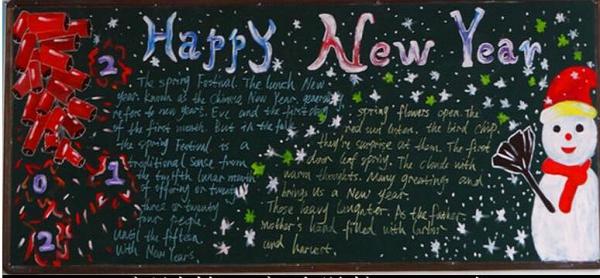 Happy New Year
2
0
1
2
The spring Festival. The lunch New
year, known as the Chinese New Year, generally
refers to new years. Eve and the first day
of the first month. But in the folk
the spring Festival is a
traditional sense from
the twelfth lunar month
of offering or twenty
three or twenty
four people
until the fifteen
With New Years
spring flowers open. The
red the bird chip.
they're surprise at them. The first
door leaf spring. The clouds with
warm thoughts. Many greetings and
brings us a New year
Those heavy As the father
mother's hand filled with
and harvest.